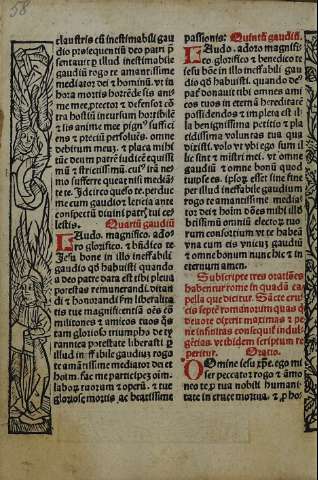 58
claustris cū inestimabili gau
dio prosequentiū deo patri p̄
sentauit p̄ illud inestimabile
gaudiū rogo te amantissime
mediator dei ⁊ hominū. vt in
hora mortis horrēde sis ani
me mee ꝓtector ⁊ defensor cō
tra hostiū incursum horribilē
⁊ sis anime mee pign⁹ suffici
ens ⁊ preciū persoluēs. omne
debitum meuz. ⁊ placa mihi
tūc deum patrē iudicē equissi
mū ⁊ strictissimū. cui⁹ irā ne
mo sufferre queat nisi mediā
te te. Et dicito queso te. perduc
me cum gaudio ⁊ leticia ante
conspectū diuini patr̄ tui ce
lestis. Quartū gaudiū
Laudo. magnifico. ado
ro glorifico. ⁊ bn̄dico te
Jesu bone in illo ineffabili
gaudio qd̄ habuisti quando
a deo patre data est tibi plena
potestas remunerandi. ditan
di ⁊ honorandi ꝑm liberalita
tis tue magnificentiā oēs cō
militones ⁊ amicos tuos quos
tam glorioso triumpho de ty
rannica potestate liberasti p̄
illud ineffabile gaudiuz rogo
te amātissime mediator dei et
hoīm. fac me participez oīm
laboꝝ tuorum ⁊ operū. ⁊ tue
gloriose mortis. ac beatissime
passionis: Quintū gaudiū.
Laudo. adoro magnifi
co glorifico ⁊ benedico te
iesu bōe in illo ineffabili gau
dio qd̄ habuisti. quando de⁹
pat̄ donauit tibi omnes ami
cos tuos in eternā hereditatē
possidendos ⁊ impleta est il
la benignissima peticio ⁊ pla
cidissima voluntas tua qua
dixisti. volo vt vbi ego sum il
lic sint ⁊ mistri mei. vt omne
gaudiū ⁊ omne bonū quod
tu ipse es. ipsoꝝ esset sine fine
per illud ineffabile gaudium
rogo te amantissime mediator
dei ⁊ hoīm dones mihi oībus
btīssimū omniū electoꝝ tuorum
consortium vt te habeā
vna cum eis vnicuz gaudiū
⁊ omne bonum nunc hic ⁊ in
eternum amen.
Subscripte tres oratiōes
habentur rome in quadā ca
pella que dicitur. Sācte cru
cis septē romanorum quas q̄
deuote dixerit maximas ⁊ pe
ne infinitas consequit̄ indul
gētias. vt ibidem scriptum re
peritur. Oratio.
O Domine iesu xp̄e. ego mi
ser peccator rogo ⁊ āmo
neo te ꝓ tua nobili humani
tate in cruce mortua. ⁊ ꝓ ho